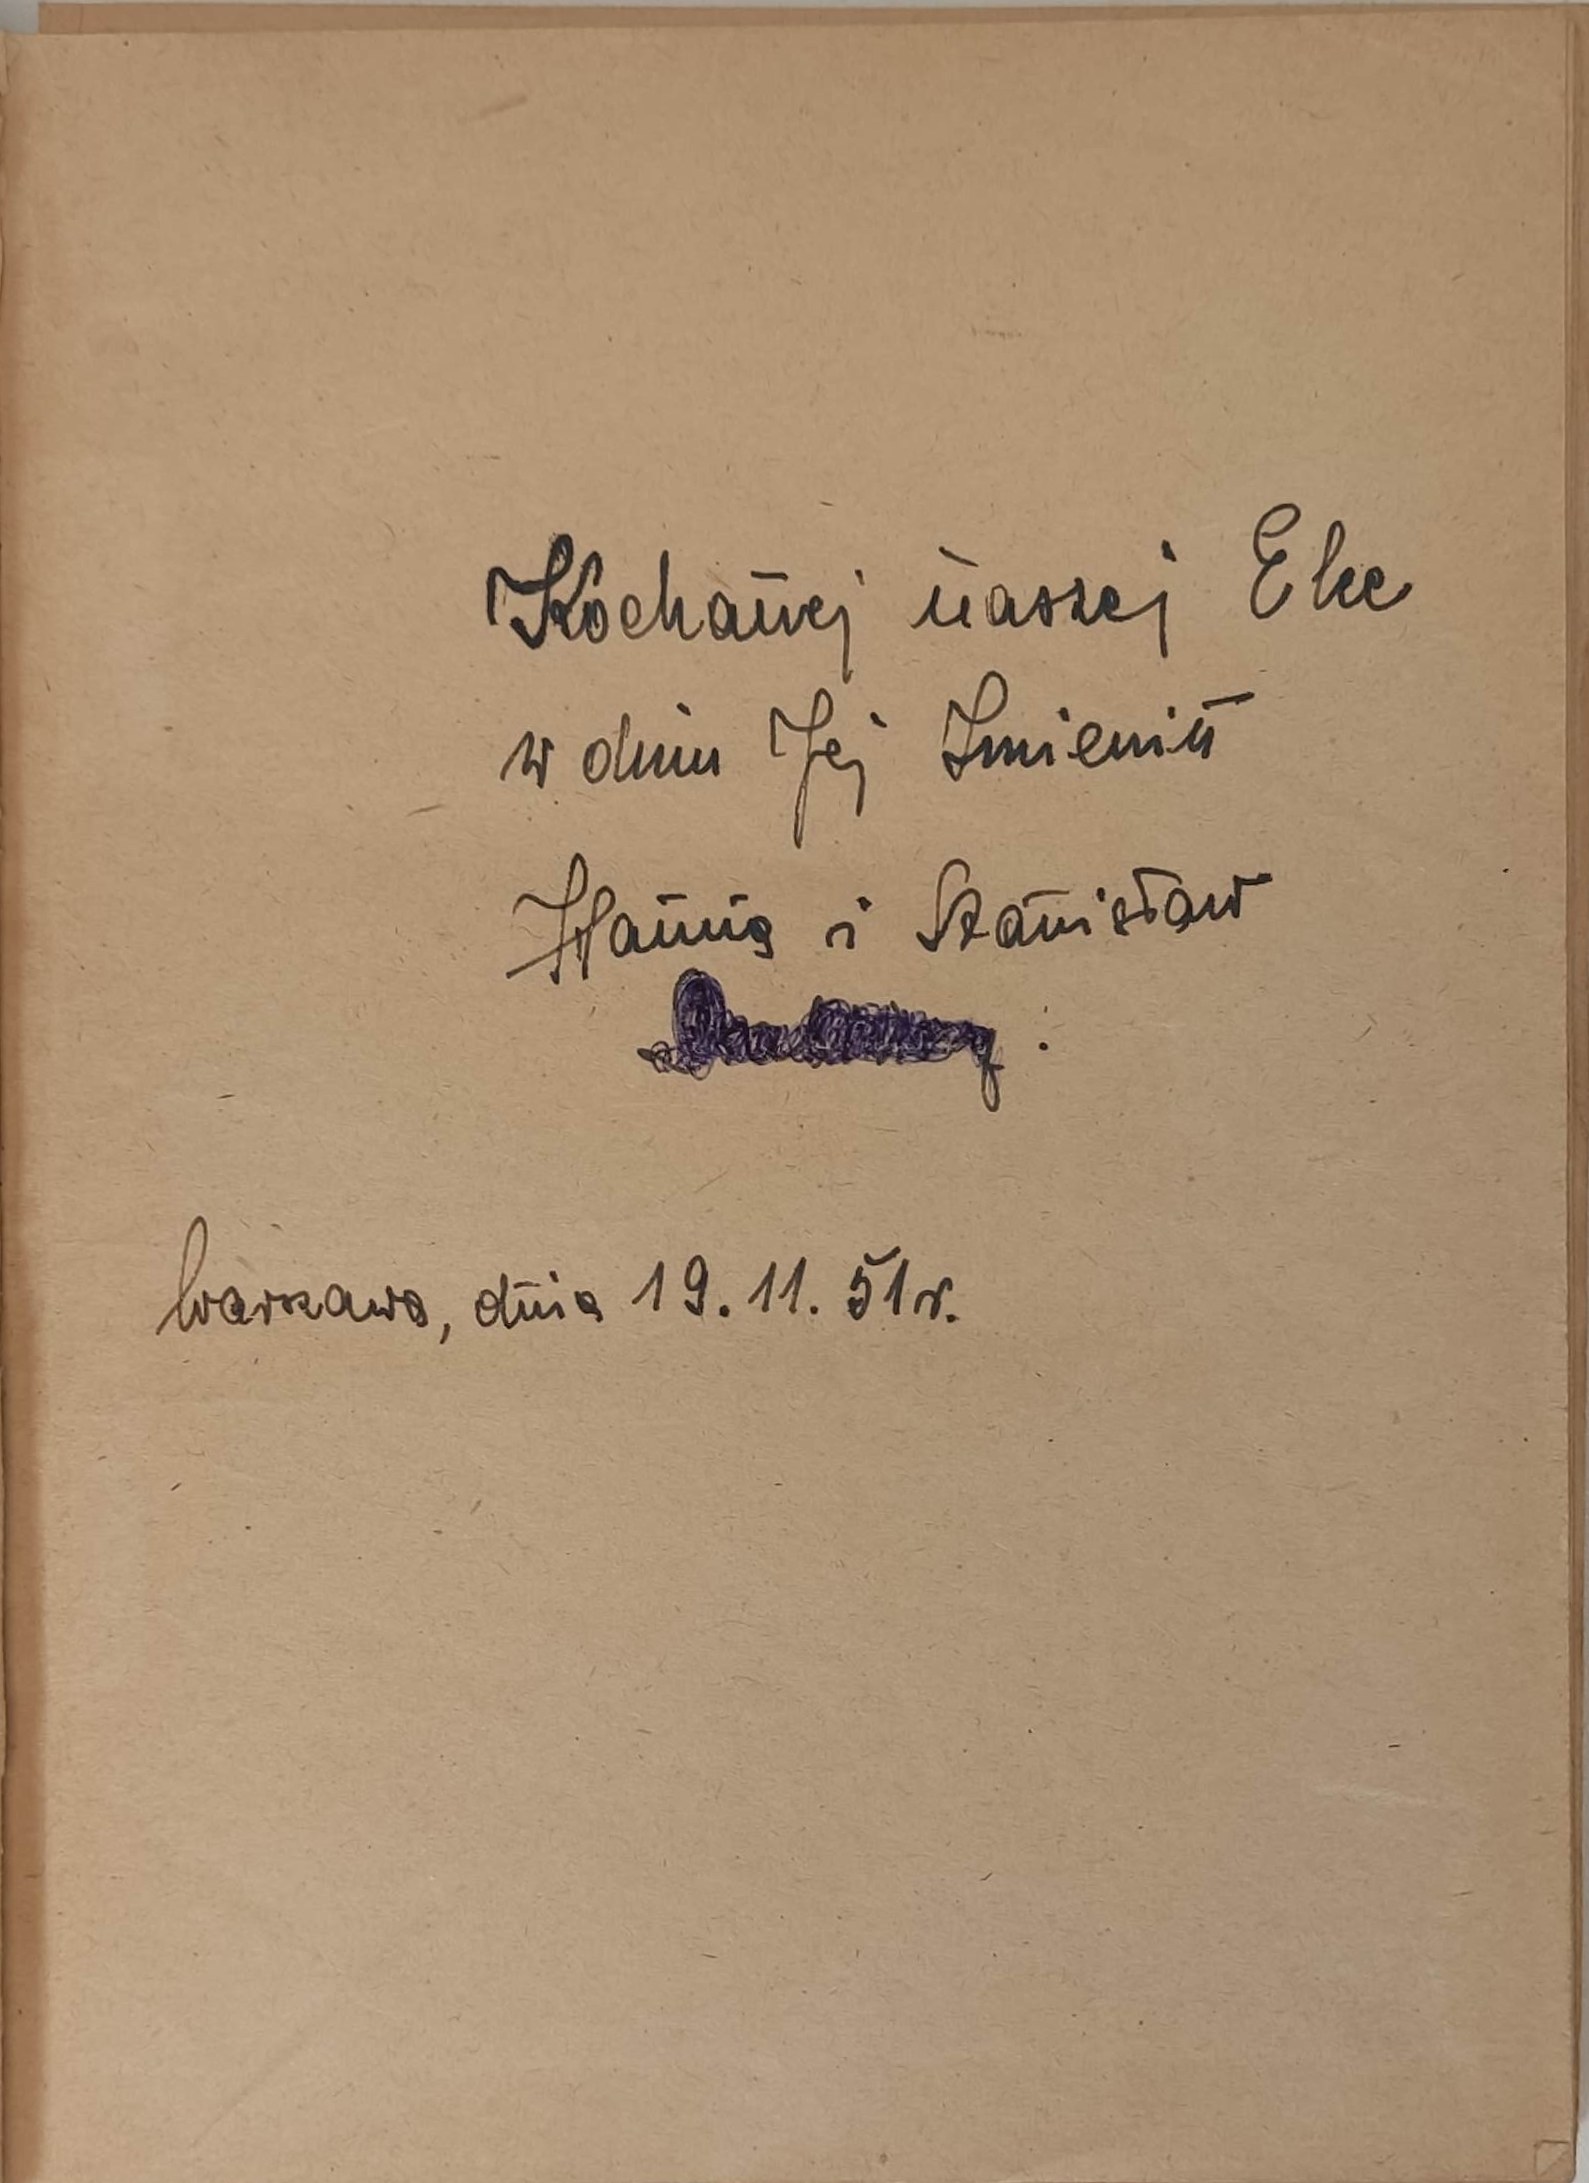 Kochanej naszej Elce
w dniu Jej Imienin
Hanna i Stanisław
Warszawa, dnia 19.11.51 r.